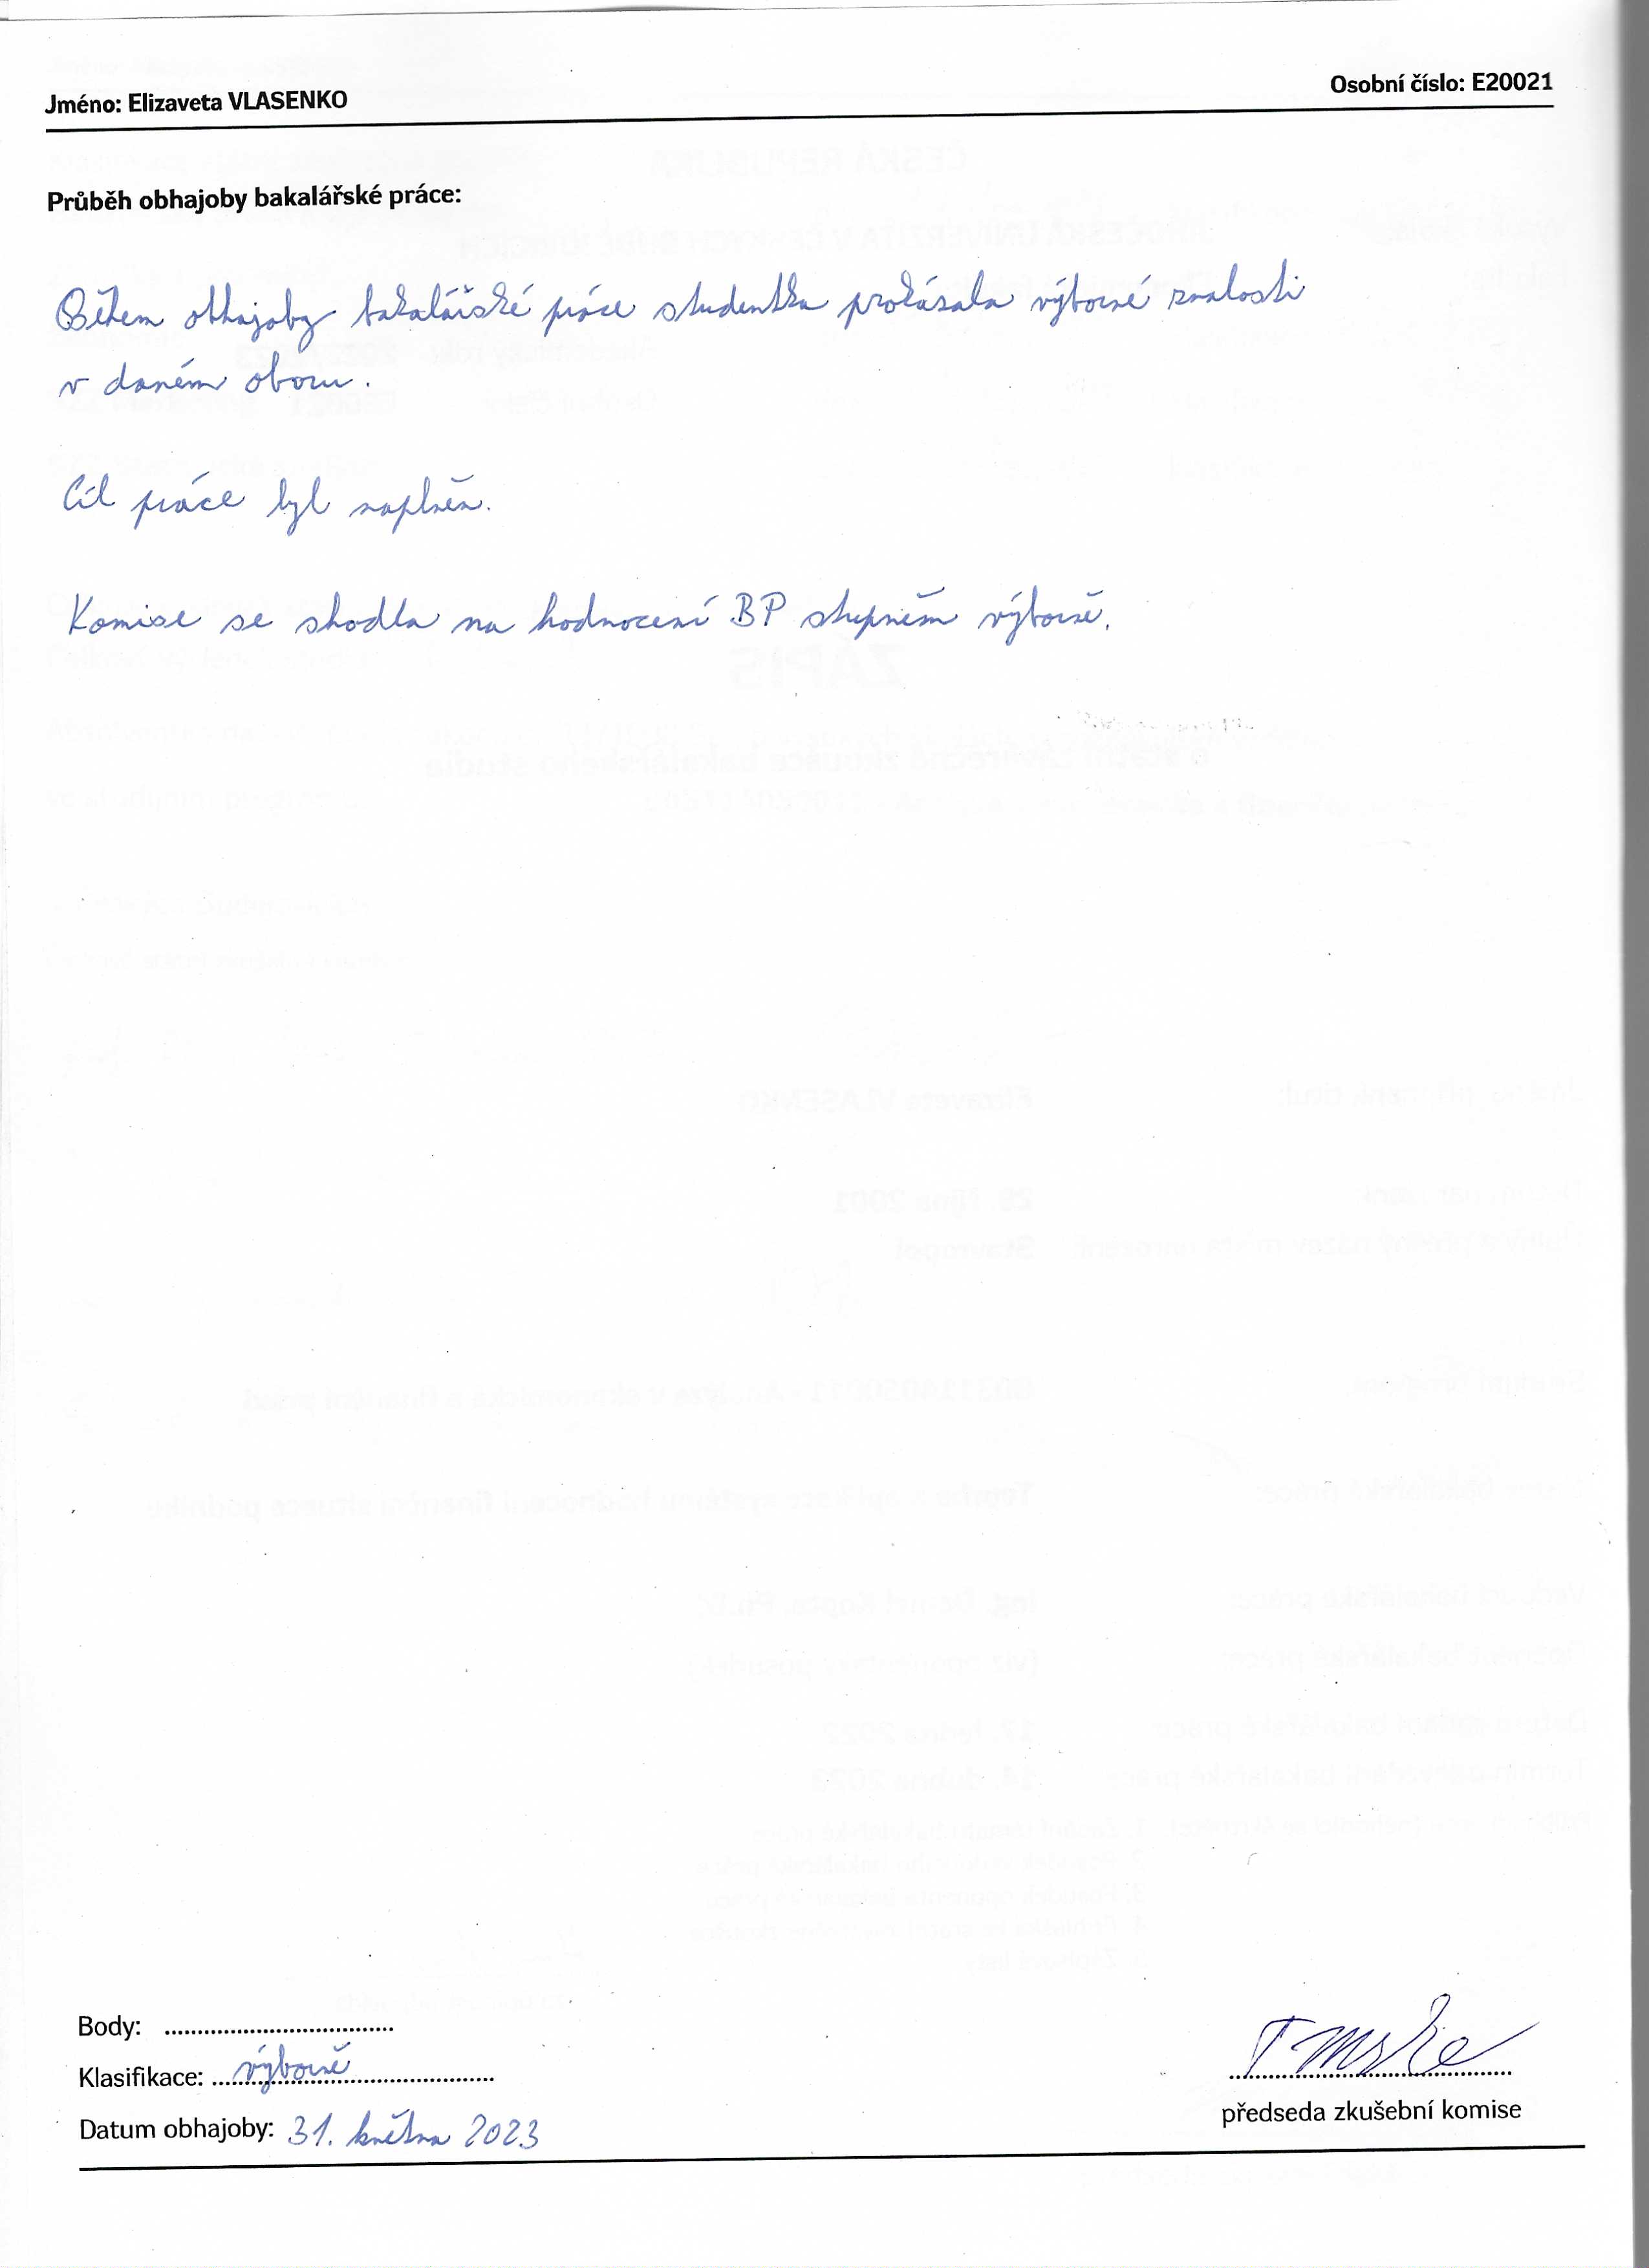 Jméno: Elizaveta VLASENKO
Osobní číslo: E20021
Průběh obhajoby bakalářské práce:
Během obhajoby bakalářské práce studentka prokázala výborné znalosti
v daném oboru.
Cíl práce byl naplněn.
Komise se shodla na hodnocení BP stupněm výborně.
Body: ...................................
Klasifikace: výborně
Datum obhajoby: 31. května 2023
předseda zkušební komise